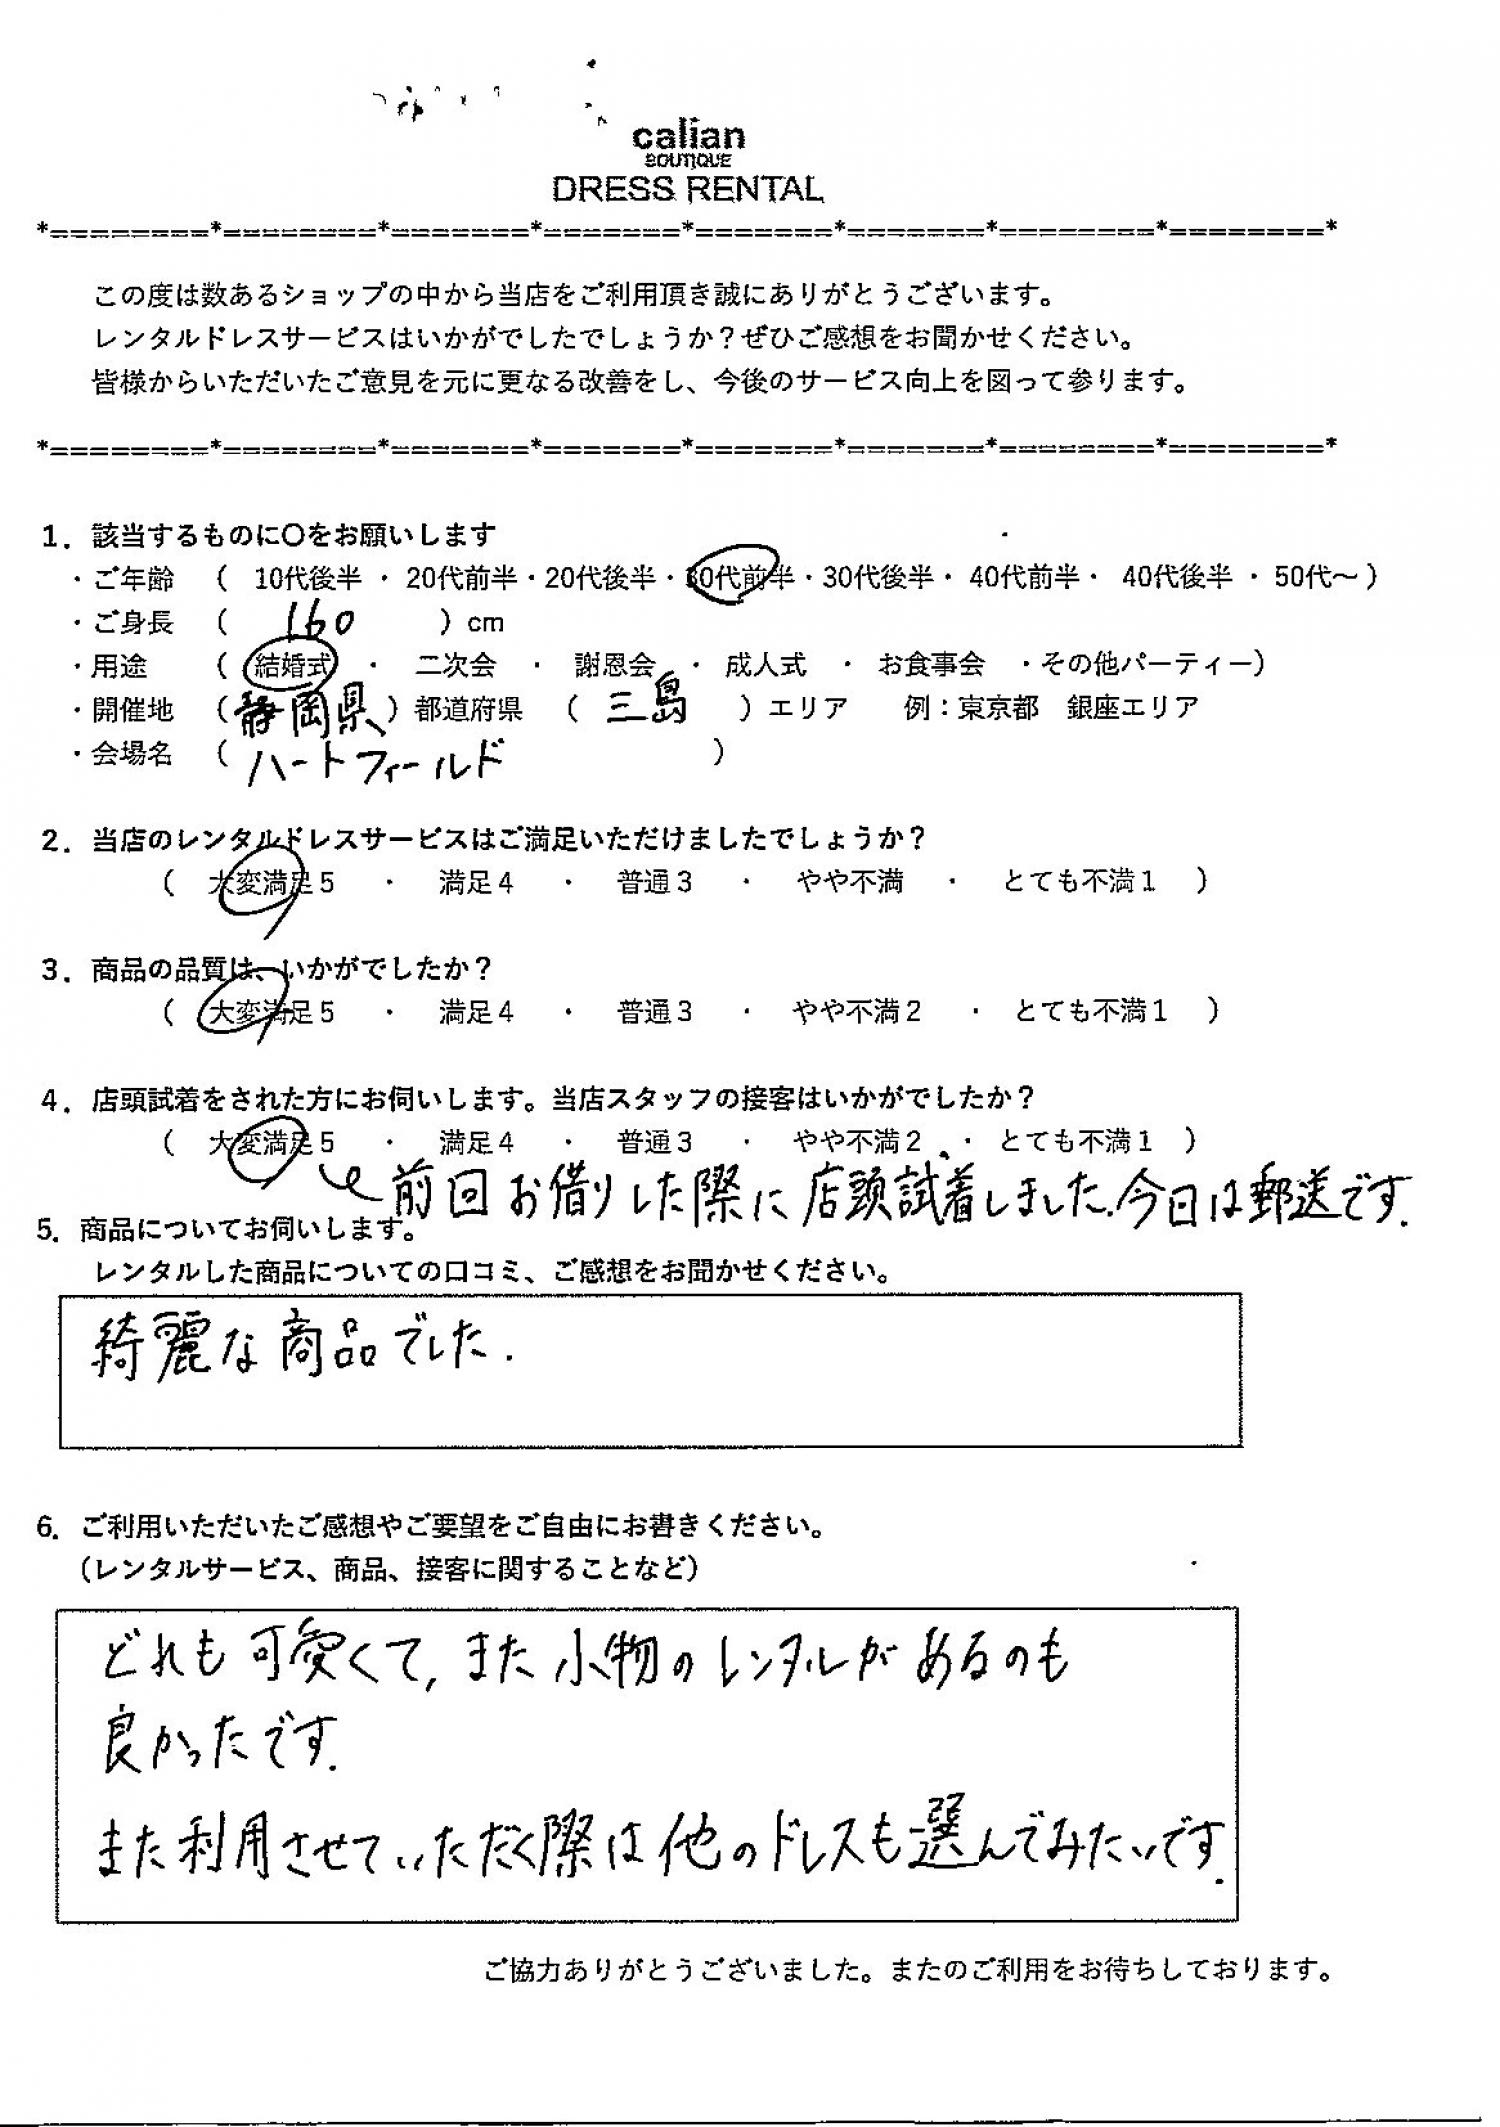 calian
BOUTIQUE
DRESS RENTAL
*========*========*=======*=======*=======*=======*========*========*
この度は数あるショップの中から当店をご利用頂き誠にありがとうございます。
レンタルドレスサービスはいかがでしたでしょうか？ぜひご感想をお聞かせください。
皆様からいただいたご意見を元に更なる改善をし、今後のサービス向上を図って参ります。
*========*========*=======*=======*=======*=======*========*========*
1．該当するものに〇をお願いします
・ご年齢 （ 10代後半 ・ 20代前半・20代後半・30代前半・30代後半・ 40代前半・ 40代後半 ・ 50代～）
・ご身長 （ 160 ）cm
・用途 （ 結婚式 ・ 二次会 ・ 謝恩会 ・ 成人式 ・ お食事会 ・その他パーティー）
・開催地 （静岡県）都道府県 （ 三島 ）エリア 例：東京都 銀座エリア
・会場名 （ ハートフィールド ）
2．当店のレンタルドレスサービスはご満足いただけましたでしょうか？
（ 大変満足５ ・ 満足４ ・ 普通３ ・ やや不満 ・ とても不満１ ）
3．商品の品質は、いかがでしたか？
（ 大変満足５ ・ 満足４ ・ 普通３ ・ やや不満２ ・ とても不満１ ）
4．店頭試着をされた方にお伺いします。当店スタッフの接客はいかがでしたか？
（ 大変満足５ ・ 満足４ ・ 普通３ ・ やや不満２ ・ とても不満１ ）
前回お借りした際に店頭試着しました.今日は郵送です.
5．商品についてお伺いします。
レンタルした商品についての口コミ、ご感想をお聞かせください。
綺麗な商品でした.
6．ご利用いただいたご感想やご要望をご自由にお書きください。
（レンタルサービス、商品、接客に関することなど）
どれも可愛くて,また小物のレンタルがあるのも
良かったです.
また利用させていただく際は他のドレスも選んでみたいです.
ご協力ありがとうございました。またのご利用をお待ちしております。